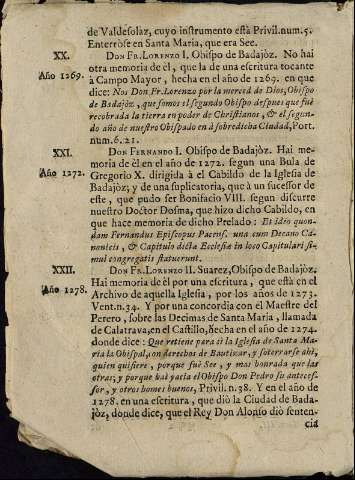 de Valdesolaz, cuyo instrumento està Privil.num.5.
Enterròse en Santa Maria, que era See.
XX.
Año 1269.
DON FR. LORENZO I. Obispo de Badajòz. No hai
otra memoria de èl, que la de una escritura tocante
à Campo Mayor, hecha en el año de 1269. en que
dice: Nos Don Fr. Lorenzo por la merced de Dios, Obispo
de Badajòz, que somos el segundo Obispo despues que fuè
recobrada la tierra en poder de Christianos, & el segun-
do año de nuestro Obispado en à sobredicha Ciudad, Port.
num.6.21.
XXI.
Año 1272.
DON FERNANDO I. Obispo de Badajòz. Hai me-
moria de èl en el año de 1272. segun una Bula de
Gregorio X. dirigida à el Cabildo de la Iglesia de
Badajòz, y de una suplicatoria, que à un sucessor de
este, que pudo ser Bonifacio VIII. segun discurre
nuestro Doctor Dosma, que hizo dicho Cabildo, en
que hace memoria de dicho Prelado: Et idèo quon-
dam Fernandus Episcopus Pacens. una cum Decano Ca-
nonicis, & Capitulo dicta Ecclesia in loco Capitulari si-
mul congregatis statuerunt.
XXII.
Año 1278.
DON FR. LORENZO II. Suarez, Obispo de Badajòz.
Hai memoria de èl por una escritura, que està en el
Archivo de aquella Iglesia, por los anos de 1273.
Vent.n.34. Y por una concordia con el Maestre del
Perero, sobre las Decimas de Santa Maria, llamada
de Calatrava, en el Castillo, fecha en el año de 1274.
donde dice: Que retiene para sì la Iglesia de Santa Ma-
ria la Obispal, con derechos de Bautizar, y soterrarse ahi,
quien quisiere, porque fuè See, y mas honrada que las
otras; y porque hai yacia el Obispo Don Pedro su anteces-
sor, y otros homes buenos, Privil. n.38. Y en el año de
1278. en una escritura, que diò la Ciudad de Bada-
jòz, donde dice, que el Rey Don Alonso diò senten-
cia